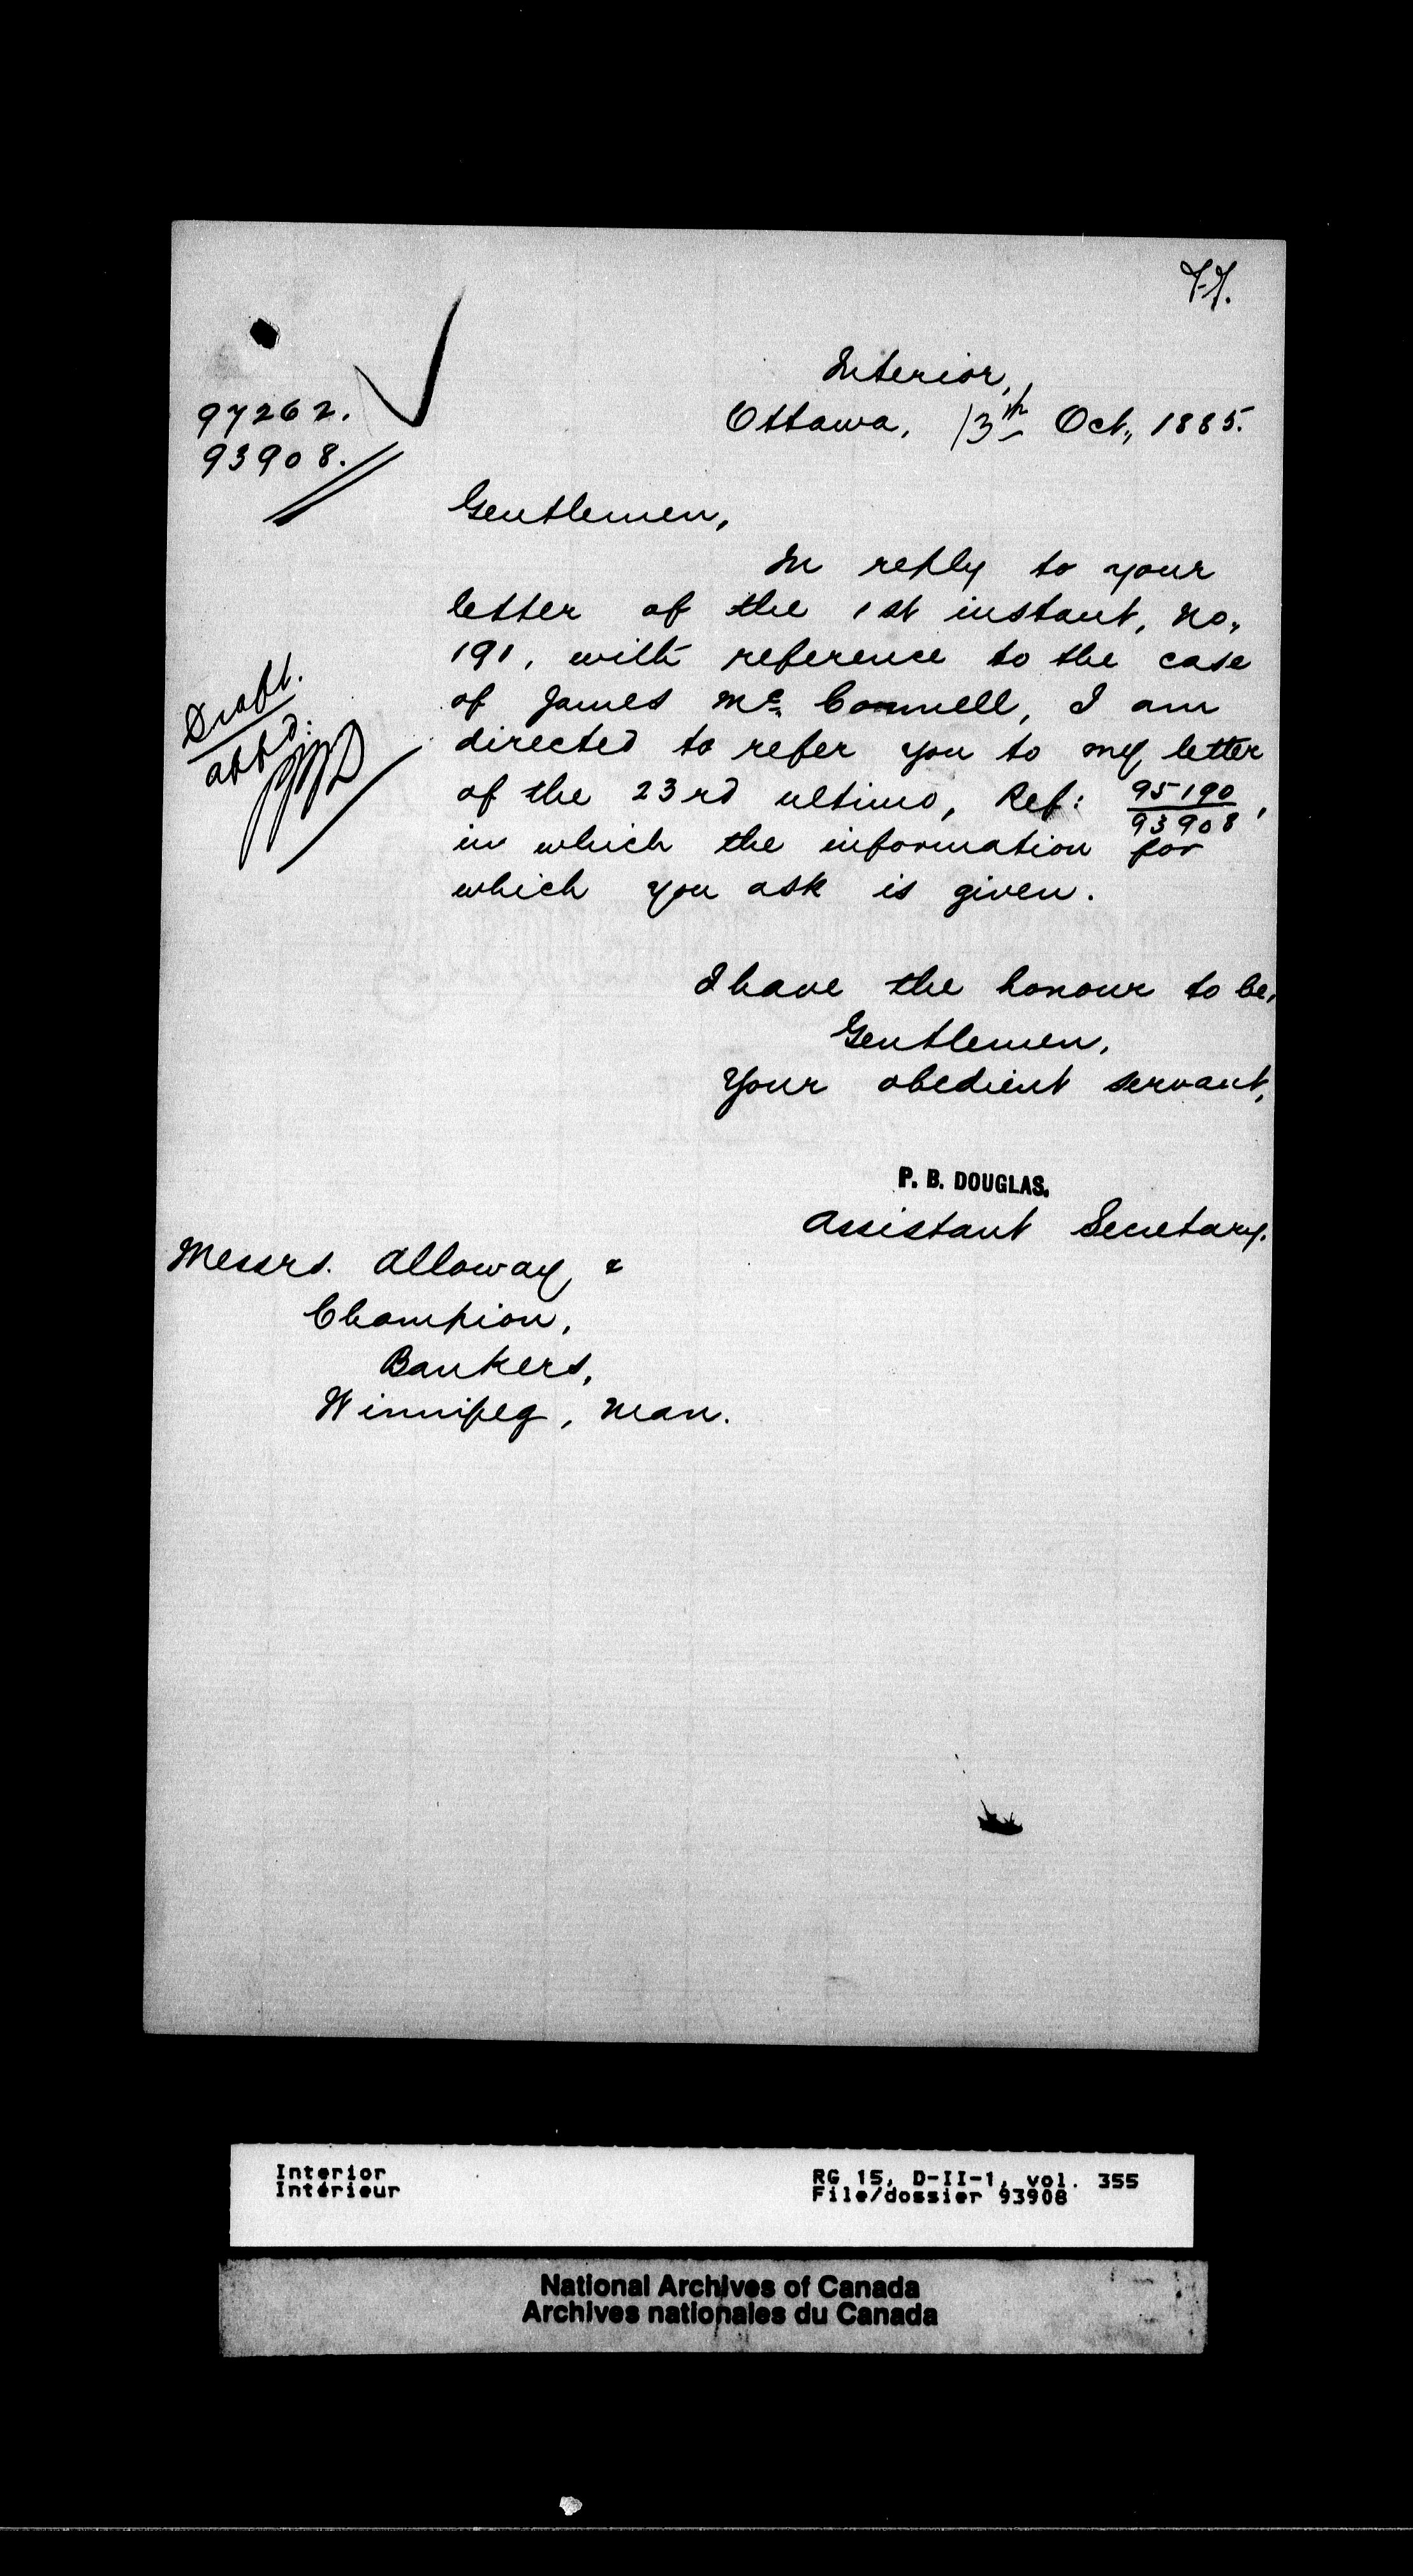 Interior,
Ottawa, 13th Oct., 1885.
97262.
93908.
Gentlemen,
In reply to your
letter of the 1st instant, No.
191, with reference to the case
of James Mc Connell, I am
directed to refer you to my letter
of the 23rd ultimo, Ref: 95190/93908,
in which the information for
which you ask is given.
Draft.
appd.
I have the honour to be,
Gentlemen,
Your obedient servant,
P. B. DOUGLAS.
Assistant Secretary.
Messrs. Alloway &
Champion,
Bankers,
Winnipeg, Man.
Interior
Intérieur
RG 15, D-II-1, vol. 355
File/dossier 93908
National Archives of Canada
Archives nationales du Canada